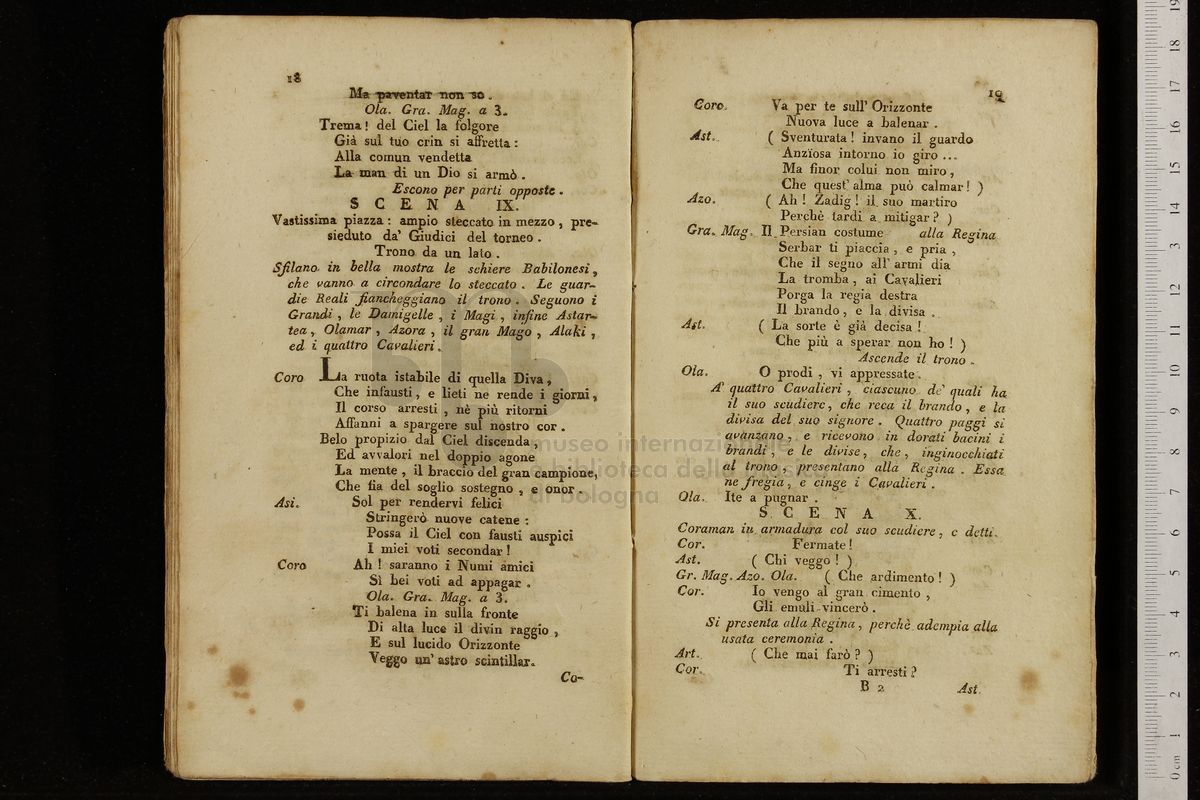 18
Ma paventar non so.
Ola. Gra. Mag. a 3.
Trema! del Ciel la folgore
Già sul tuo crin si affretta:
Alla comun vendetta
La man di un Dio si armò.
Escono per parti opposte.
SCENA IX.
Vastissima piazza: ampio steccato in mezzo, pre-
sieduto da' Giudici del torneo.
Trono da un lato.
Sfilano in bella mostra le schiere Babilonesi,
che vanno a circondare lo steccato. Le guar-
die Reali fiancheggiano il trono. Seguono i
Grandi, le Damigelle, i Magi, infine Astar-
tea, Olamar, Azora, il gran Mago, Alaki,
ed i quattro Cavalieri.
Coro La ruota istabile di quella Diva,
Che infausti, e lieti ne rende i giorni,
Il corso arresti, nè più ritorni
Affanni a spargere sul nostro cor.
Belo propizio dal Ciel discenda,
Ed avvalori nel doppio agone
La mente, il braccio del gran campione,
Che fia del soglio sostegno, e onor.
Asi. Sol per rendervi felici
Stringerò nuove catene:
Possa il Ciel con fausti auspici
I miei voti secondar!
Coro Ah! saranno i Numi amici
Sì bei voti ad appagar.
Ola. Gra. Mag. a 3.
Ti balena in sulla fronte
Di alta luce il divin raggio,
E sul lucido Orizzonte
Veggo un' astro scintillar.
Co-
19
Coro. Va per te sull' Orizzonte
Nuova luce a balenar.
Ast. ( Sventurata! invano il guardo
Anziosa intorno io giro ...
Ma finor colui non miro,
Che quest' alma può calmar! )
Azo. ( Ah! Zadig! il suo martiro
Perchè tardi a mitigar? )
Gra. Mag. Il Persian costume alla Regina
Serbar ti piaccia, e pria,
Che il segno all' armi dia
La tromba, ai Cavalieri
Porga la regia destra
Il brando, e la divisa.
Ast. ( La sorte è già decisa!
Che più a sperar non ho! )
Ascende il trono.
Ola. O prodi, vi appressate.
A' quattro Cavalieri, ciascuno de' quali ha
il suo scudiere, che reca il brando, e la
divisa del suo signore. Quattro paggi si
avanzano, e ricevono in dorati bacini i
brandi, e le divise, che, inginocchiati
al trono, presentano alla Regina. Essa
ne fregia, e cinge i Cavalieri.
Ola. Ite a pugnar.
SCENA X.
Coraman in armadura col suo scudiere, e detti.
Cor. Fermate!
Ast. ( Chi veggo! )
Gr. Mag. Azo. Ola. ( Che ardimento! )
Cor. Io vengo al gran cimento,
Gli emuli vincerò.
Si presenta alla Regina, perchè adempia alla
usata ceremonia.
Art. ( Che mai farò? )
Cor. Ti arresti?
B 2 Ast.
museo internazionale
e biblioteca della musica
di bologna